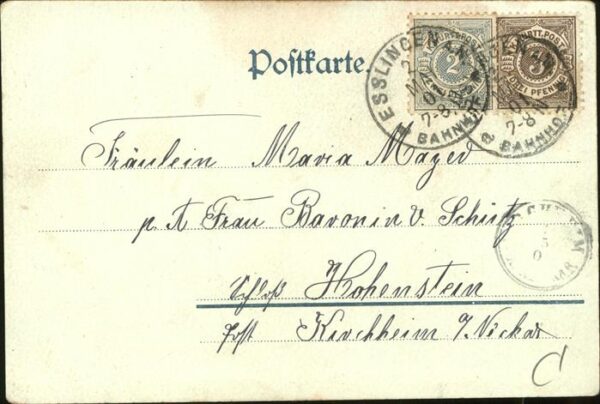 Postkarte.
ESSLINGEN A.N.
BAHNHOF
7-8
2
ESSLINGEN A.N.
BAHNHOF
7-8
3
Fräulein Maria Mayer
p. A Frau Baronin v. Schütz
Schloß Hohenstein
Post Kirchheim a/Neckar